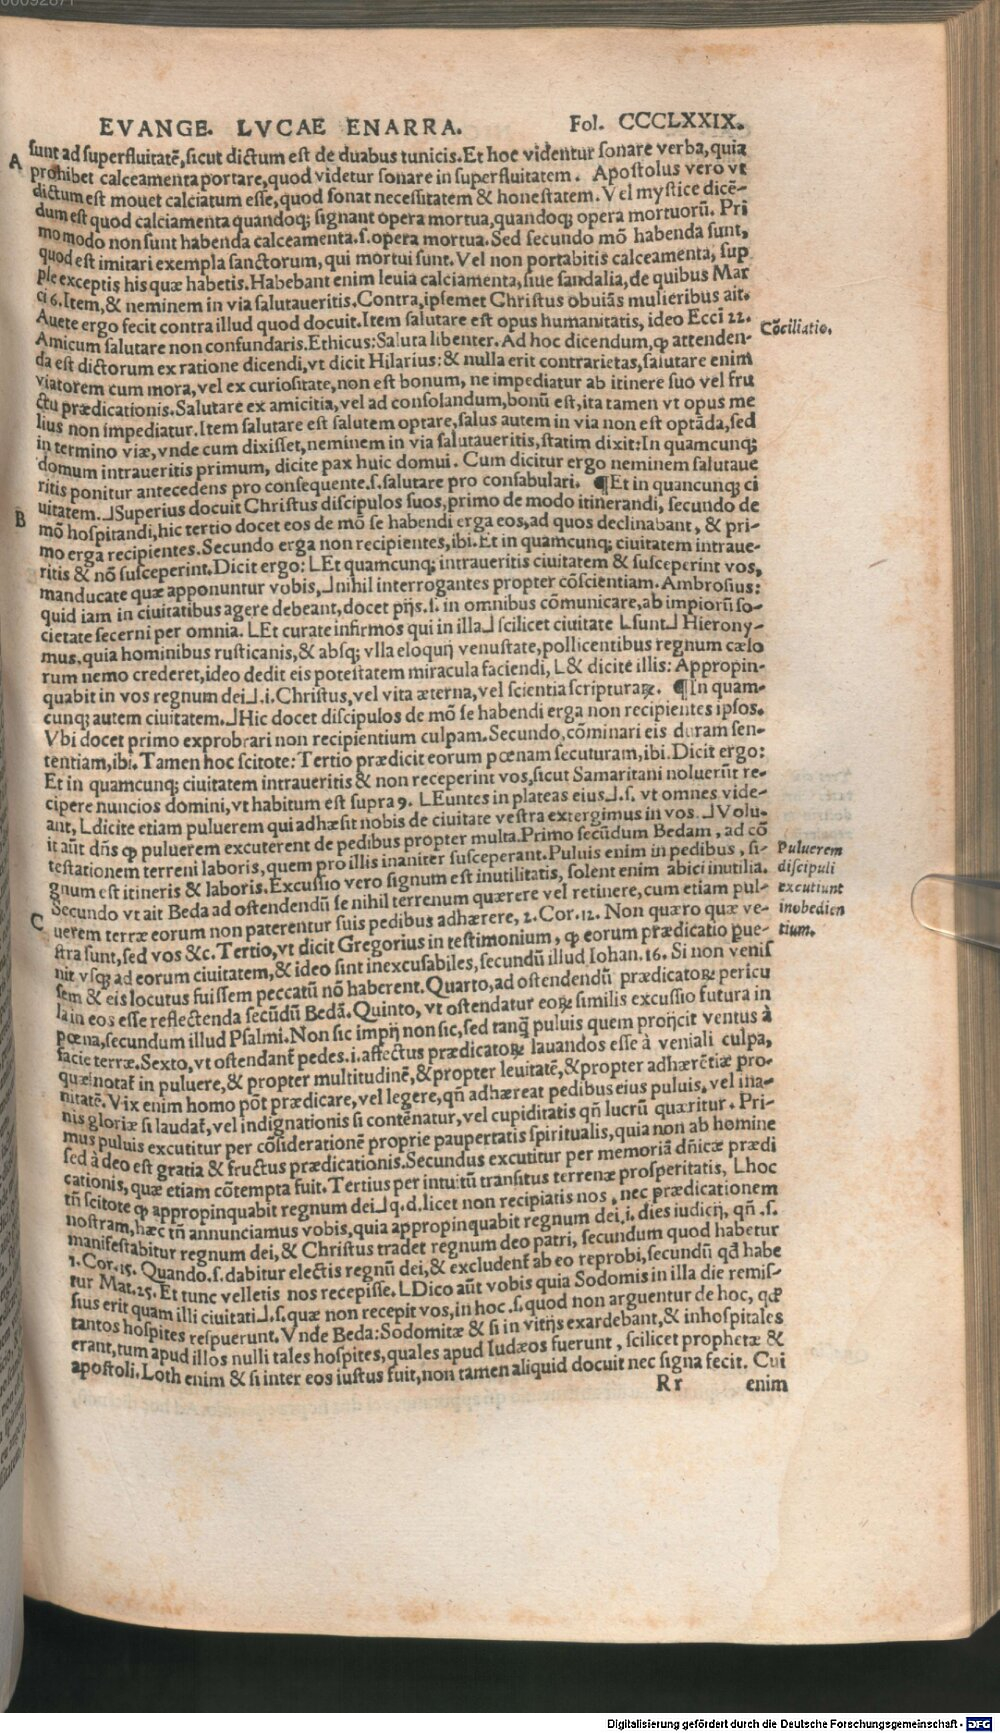 EVANGE. LVCAE ENARRA. Fol. CCCLXXIX.
A
sunt ad superfluitatē, sicut dictum est de duabus tunicis. Et hoc videntur sonare verba, quia
prohibet calceamenta portare, quod videtur sonare in superfluitatem. Apostolus vero vt
dictum est mouet calciatum esse, quod sonat necessitatem & honestatem. Vel mystice dicē-
dum est quod calciamenta quandoq; signant opera mortua, quandoq; opera mortuorū. Pri
mo modo non sunt habenda calceamenta. s. opera mortua. Sed secundo mō habenda sunt,
quod est imitari exempla sanctorum, qui mortui sunt. Vel non portabitis calceamenta, sup
ple exceptis his quæ habetis. Habebant enim leuia calciamenta, siue sandalia, de quibus Mar
ci 6. Item, & neminem in via salutaueritis. Contra, ipsemet Christus obuiās mulieribus ait.
Auete ergo fecit contra illud quod docuit. Item salutare est opus humanitatis, ideo Ecci 22.
Cōciliatio.
Amicum salutare non confundaris. Ethicus: Saluta libenter. Ad hoc dicendum, ꝙ attenden-
da est dictorum ex ratione dicendi, vt dicit Hilarius: & nulla erit contrarietas, salutare enim
viatorem cum mora, vel ex curiositate, non est bonum, ne impediatur ab itinere suo vel fru
ctu prædicationis. Salutare ex amicitia, vel ad consolandum, bonū est, ita tamen vt opus me
lius non impediatur. Item salutare est salutem optare, salus autem in via non est optāda, sed
in termino viæ, vnde cum dixisset, neminem in via salutaueritis, statim dixit: In quamcunq;
domum intraueritis primum, dicite pax huic domui. Cum dicitur ergo neminem salutaue
ritis ponitur antecedens pro consequente. s. salutare pro confabulari. ¶Et in quancunq; ci
B
uitatem. ⅃Superius docuit Christus discipulos suos, primo de modo itinerandi, secundo de
mō hospitandi, hic tertio docet eos de mō se habendi erga eos, ad quos declinabant, & pri-
mo erga recipientes. Secundo erga non recipientes, ibi. Et in quamcunq; ciuitatem intraue-
ritis & nō susceperint. Dicit ergo: LEt quamcunq; intraueritis ciuitatem & susceperint vos,
manducate quæ apponuntur vobis, ⅃nihil interrogantes propter cōscientiam. Ambrosius:
quid iam in ciuitatibus agere debeant, docet pijs. s. in omnibus cōmunicare, ab impiorū so-
cietate secerni per omnia. LEt curate infirmos qui in illa⅃ scilicet ciuitate Lsunt⅃ Hierony-
mus, quia hominibus rusticanis, & absq; vlla eloquij venustate, pollicentibus regnum cælo
rum nemo crederet, ideo dedit eis potestatem miracula faciendi, L& dicite illis: Appropin-
quabit in vos regnum dei⅃. i. Christus, vel vita æterna, vel scientia scripturaꝝ. ¶In quam-
cunq; autem ciuitatem. ⅃Hic docet discipulos de mō se habendi erga non recipientes ipsos.
Vbi docet primo exprobrari non recipientium culpam. Secundo, cōminari eis duram sen-
tentiam, ibi. Tamen hoc scitote: Tertio prædicit eorum pœnam secuturam, ibi. Dicit ergo:
Et in quamcunq; ciuitatem intraueritis & non receperint vos, sicut Samaritani noluerūt re-
cipere nuncios domini, vt habitum est supra 9. LEuntes in plateas eius⅃. s. vt omnes vide-
ant, Ldicite etiam puluerem qui adhæsit nobis de ciuitate vestra extergimus in vos. ⅃Volu-
it aūt dñs ꝙ puluerem excuterent de pedibus propter multa. Primo secūdum Bedam, ad cō
testationem terreni laboris, quem pro illis inaniter susceperant. Puluis enim in pedibus, si-
gnum est itineris & laboris. Excussio vero signum est inutilitatis, solent enim abici inutilia.
Puluerem
discipuli
excutiunt
inobedien
tium.
Secundo vt ait Beda ad ostendendū se nihil terrenum quærere vel retinere, cum etiam pul-
C
uerem terræ eorum non paterentur suis pedibus adhærere, 2. Cor. 12. Non quæro quæ ve-
stra sunt, sed vos &c. Tertio, vt dicit Gregorius in testimonium, ꝙ eorum prædicatio pue-
nit vsq; ad eorum ciuitatem, & ideo sint inexcusabiles, secundū illud Iohan. 16. Si non venis
sem & eis locutus fuissem peccatū nō haberent. Quarto, ad ostendendū prædicatoꝝ pericu
la in eos esse reflectenda secūdū Bedā. Quinto, vt ostendatur eoꝝ similis excussio futura in
pœna, secundum illud Psalmi. Non sic impij non sic, sed tanq̃ puluis quem proijcit ventus à
facie terræ. Sexto, vt ostendant̃ pedes. i. affectus prædicatoꝝ lauandos esse à veniali culpa,
quæ notat̃ in puluere, & propter multitudinē, & propter leuitatē, & propter adhærētiæ pro-
nitatē. Vix enim homo pōt prædicare, vel legere, qñ adhæreat pedibus eius puluis, vel ina-
nis gloriæ si laudat̃, vel indignationis si contēnatur, vel cupiditatis qñ lucrū quæritur. Pri-
mus puluis excutitur per cōsiderationē proprie paupertatis spiritualis, quia non ab homine
sed à deo est gratia & fructus prædicationis. Secundus excutitur per memoriā dñicæ prædi
cationis, quæ etiam cōtempta fuit. Tertius per intuitū transitus terrenæ prosperitatis, Lhoc
tñ scitote ꝙ appropinquabit regnum dei⅃ q. d. licet non recipiatis nos, nec prædicationem
nostram, hæc tñ annunciamus vobis, quia appropinquabit regnum dei. i. dies iudicij, qñ. s.
manifestabitur regnum dei, & Christus tradet regnum deo patri, secundum quod habetur
1. Cor. 15. Quando. s. dabitur electis regnū dei, & excludent̃ ab eo reprobi, secundū qđ habe
tur Mat. 25. Et tunc velletis nos recepisse. LDico aūt vobis quia Sodomis in illa die remis-
sius erit quam illi ciuitati⅃. s. quæ non recepit vos, in hoc. s. quod non arguentur de hoc, qđ
tantos hospites respuerunt. Vnde Beda: Sodomitæ & si in vitijs exardebant, & inhospitales
erant, tum apud illos nulli tales hospites, quales apud Iudæos fuerunt, scilicet prophetæ &
apostoli. Loth enim & si inter eos iustus fuit, non tamen aliquid docuit nec signa fecit. Cui
Rr enim
Digitalisierung gefördert durch die Deutsche Forschungsgemeinschaft - DFG